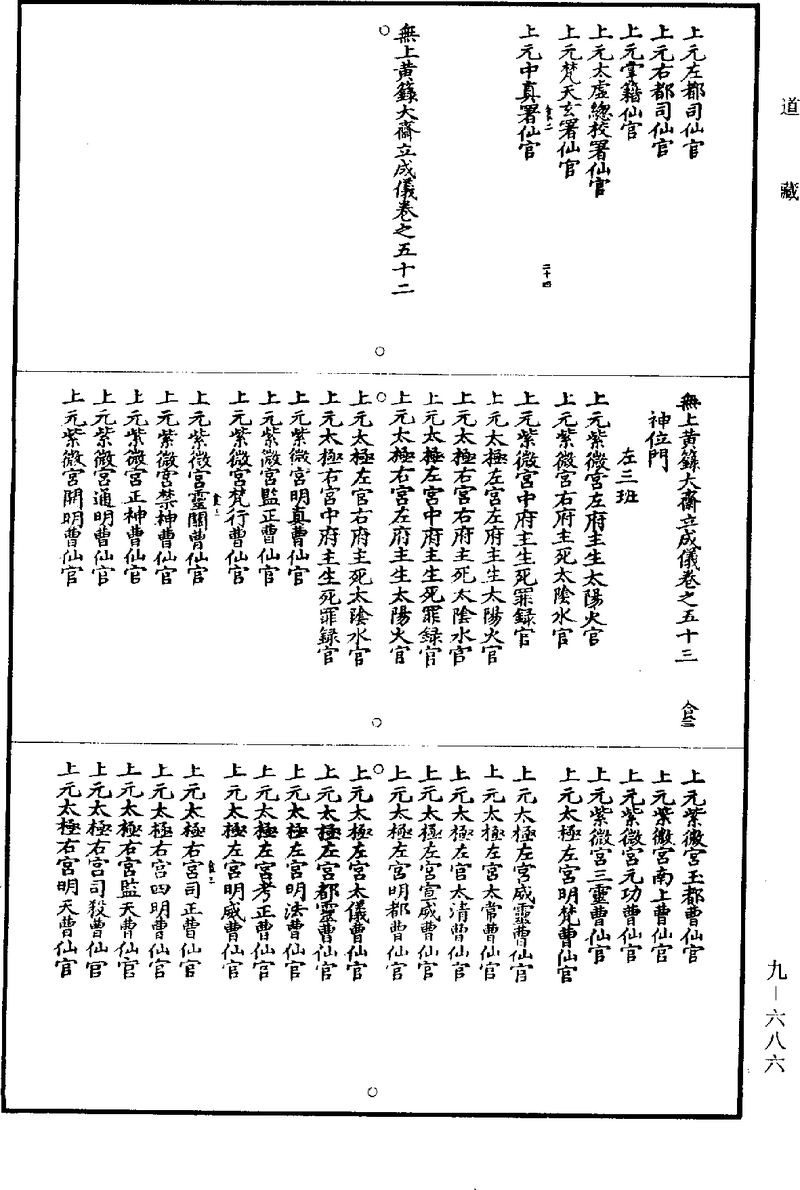 道藏
上元左都司仙官
上元右都司仙官
上元掌籍仙官
上元太虛總校署仙官
上元梵天玄署仙官
上元中真署仙官
二十四
無上黃籙大齋立成儀卷之五十二
無上黃籙大齋立成儀卷之五十三
神位門
左三班
上元紫微宮左府主生太陽火官
上元紫微宮右府主死太陰水官
上元紫微宮中府主生死罪録官
上元太極左宮左府主生太陽火官
上元太極右宮右府主死太陰水官
上元太極左宮中府主生死罪録官
上元太極右宮左府主生太陽火官
上元太極左官右府主死太陰水官
上元太極右宮中府主生死罪録官
上元紫微宮明真曹仙官
上元紫微宮監正曹仙官
上元紫微宮梵行曹仙官
上元紫微宮靈關曹仙官
上元紫微宮禁神曹仙官
上元紫微宮正神曹仙官
上元紫微宮通明曹仙官
上元紫微宮開明曹仙官
上元紫微宮玉都曹仙官
上元紫微宮南上曹仙官
上元紫微宮元功曹仙官
上元紫微宮三靈曹仙官
上元太極左宮明梵曹仙官
上元太極左宮威靈曹仙官
上元太極左宮太常曹仙官
上元太極左官太清曹仙官
上元太極左宮宣威曹仙官
上元太極左宮明都曹仙官
上元太極左宮太儀曹仙官
上元太極左宮都靈曹仙官
上元太極左宮明法曹仙官
上元太極左宮考正曹仙官
上元太極左宮明威曹仙官
上元太極右宮司正曹仙官
上元太極右宮四明曹仙官
上元太極右宮監天曹仙官
上元太極右宮司殺曹仙官
上元太極右宮明天曹仙官
九－六八六